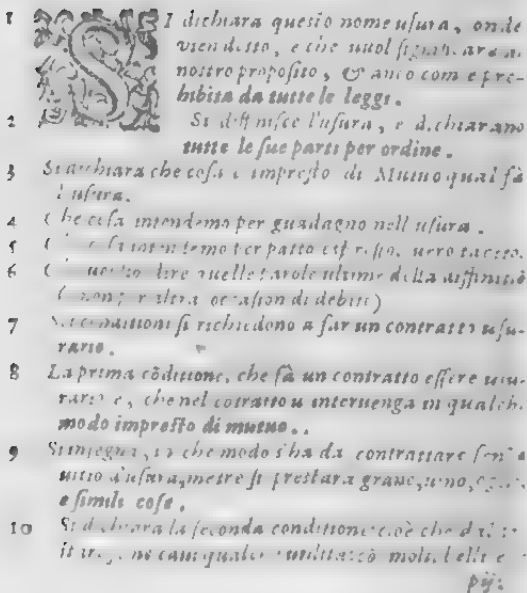 1 SI dichiara questo nome usura, onde
vien detto, e che vuol significare a
nostro proposito, & anco com'è pre-
hibita da tutte le leggi.
2 Si diffinisce l'usura, e dichiarano
tutte le sue parti per ordine.
3 Si dichiara che cosa è impresto di Mutuo qual fà
l'usura.
4 Che cosa intendemo per guadagno nell'usura.
5 intendemo per patto espresso, uero tacito.
6 dire quelle parole ultime della diffinitiō
( non per altra occasion di debito)
7 conditioni si richiedono a far un contratto usu-
rario.
8 La prima cōditione, che fà un contratto essere usu-
rario e, che nel cōtratto u interuenga in qualch.
modo impresto di mutuo..
9 S'insegna, in che modo s'ha da contrattare sen
uitio d'usura, mētre si prestara grano, uino,
e simili cose.
10 Si dichiara la seconda conditione cioè che
molti belli e
pij: